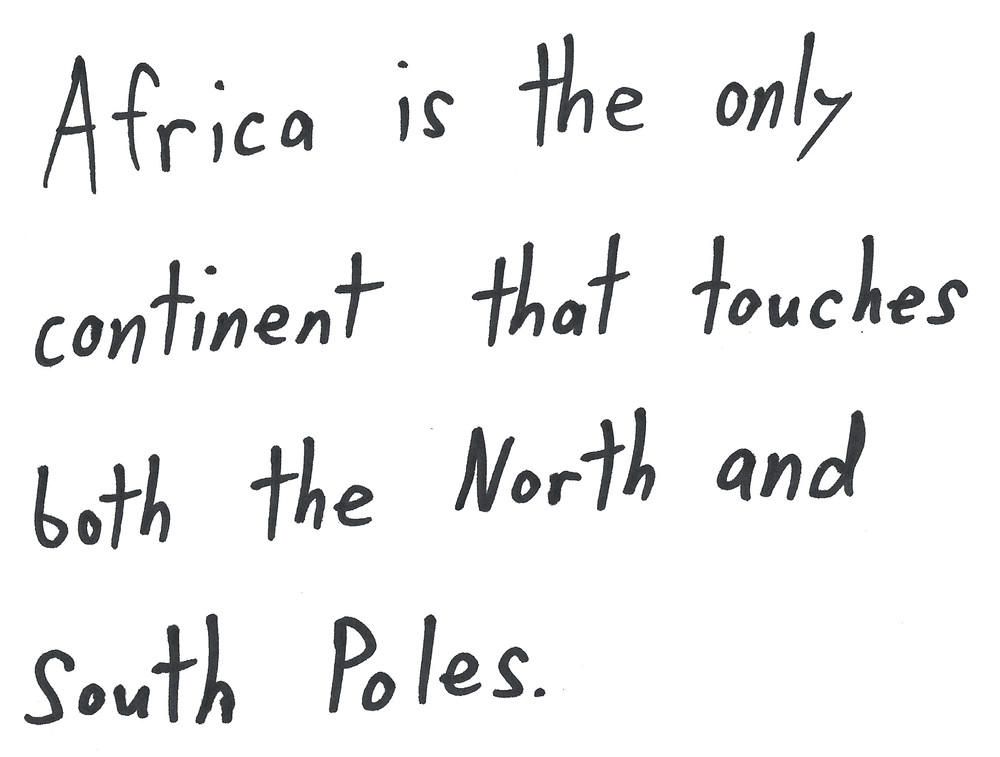 Africa is the only
continent that touches
both the North and
South Poles.